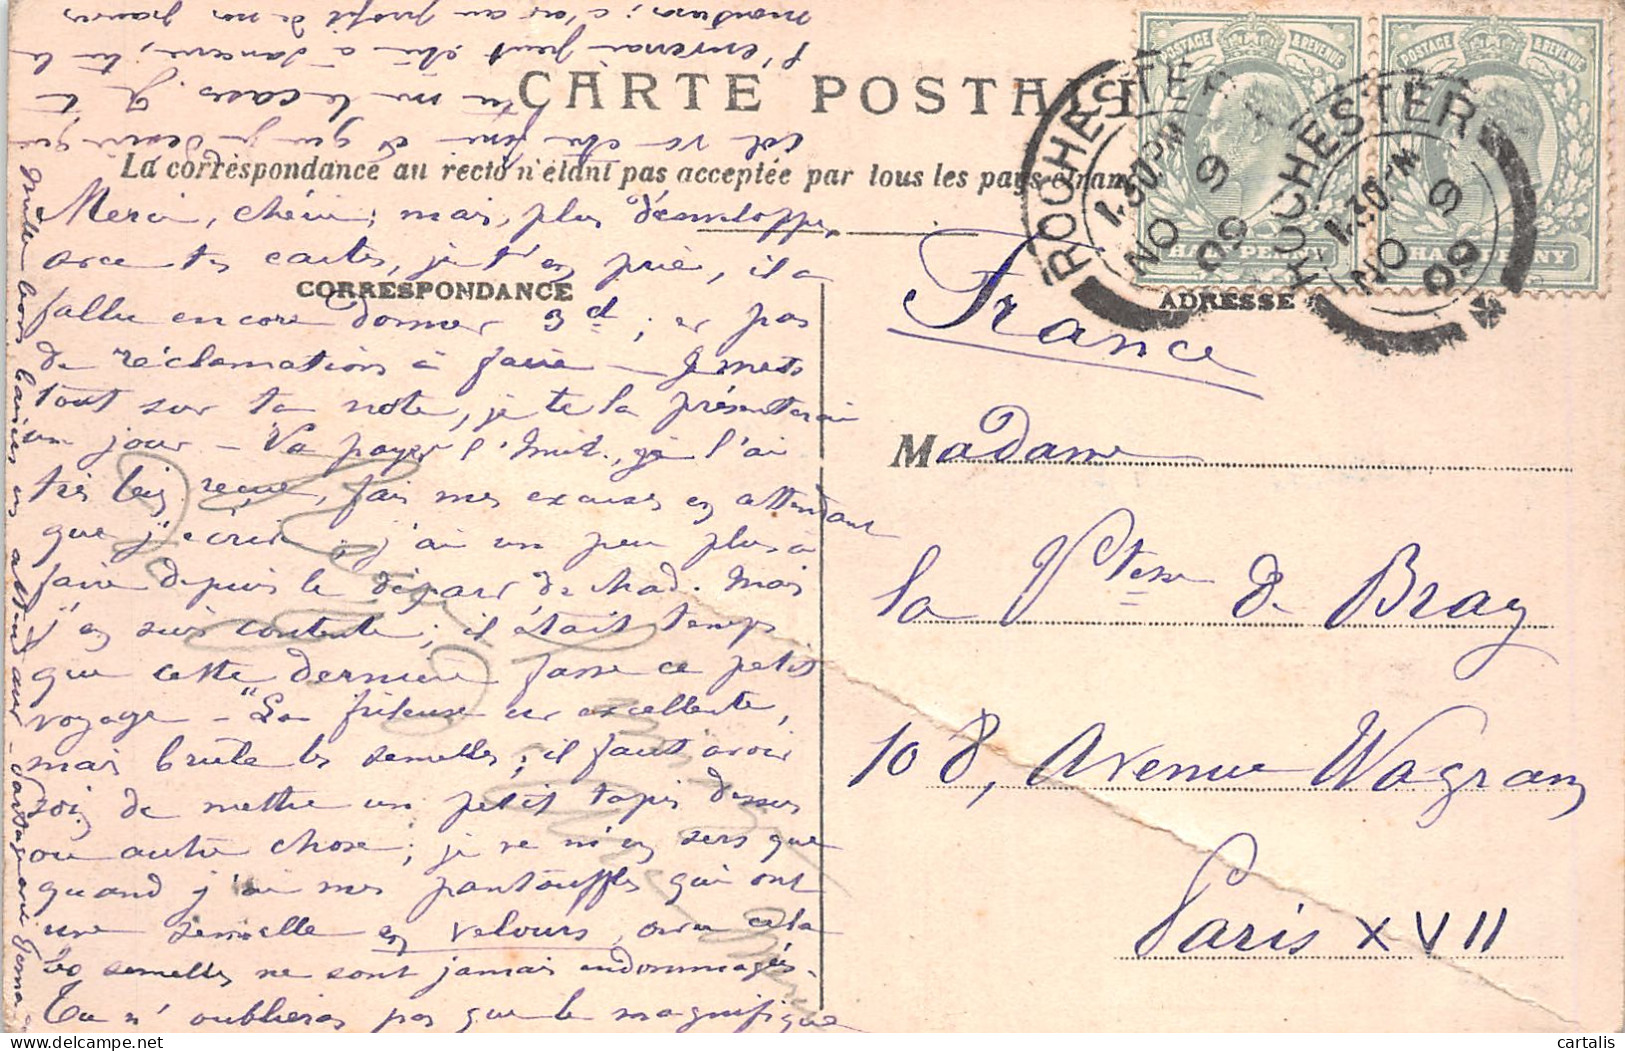 CARTE POSTALE
La correspondance au recto n'étant pas acceptée par tous les pays étran
CORRESPONDANCE
ADRESSE
POSTAGE & REVENUE
POSTAGE & REVENUE
HALFPENNY
HALFPENNY
ROCHESTER
1.30 PM
NO 9
09
ROCHESTER
1.30 PM
NO 9
09
Merci, chérie; mais, plus d'enveloppes
avec tes cartes, je t'en prie, il a
fallu encore donner 3d; et pas
de réclamations à faire – Je mets
tout sur ta note, je te la présenterai
un jour – Va payer l' je l'ai
très bien reçue, fais mes excuses en attendant
que j'écrive; j'ai un peu plus à
faire depuis le départ de Mad. Mais
j'en suis contente; il était temps
que cette dernière fasse ce petit
voyage – "La friteuse est excellente,
mais brûle les semelles; il faut avoir
soin de mettre un petit tapis dessus
ou autre chose; je ne m'en sers que
quand j'ai mes pantouffles qui ont
une semelle en velours, avec cela
les semelles ne sont jamais endommagées.
Tu n'oublieras pas que le magnifique
col va être fini et que je désire que
tu me le cases. Je t
l'enverrai peut être à
; c'est au profit de nos pauvres
Mille bons baisers en attendant
France
Madame
la Vtesse de Bray
108, Avenue Wagram
Paris XVII
cartalis